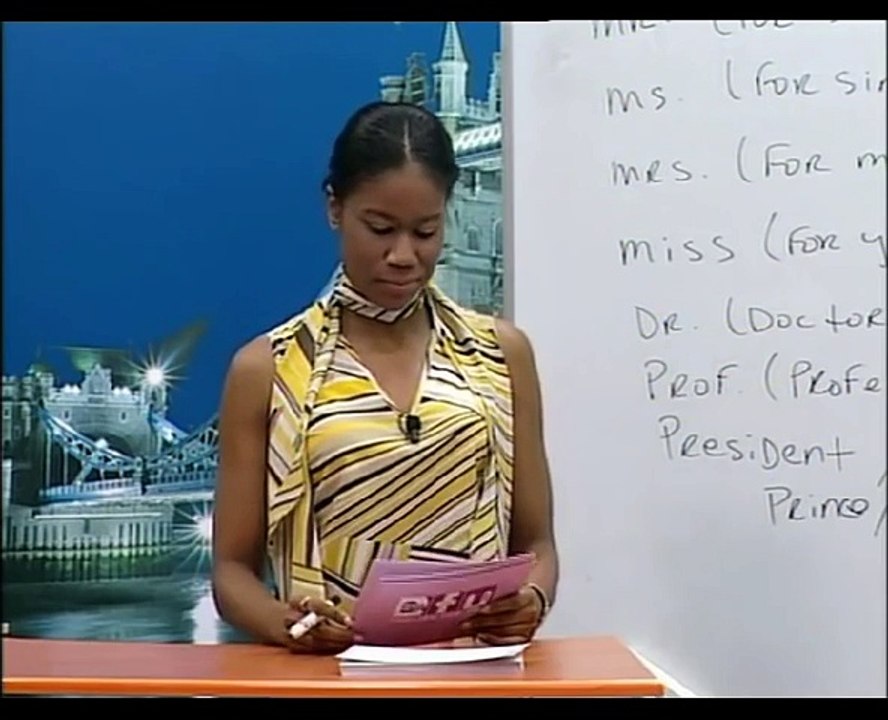 ms. (For sin
mrs. (For m
miss (For y
DR. (Doctor
Prof. (Profe
President
Prince/